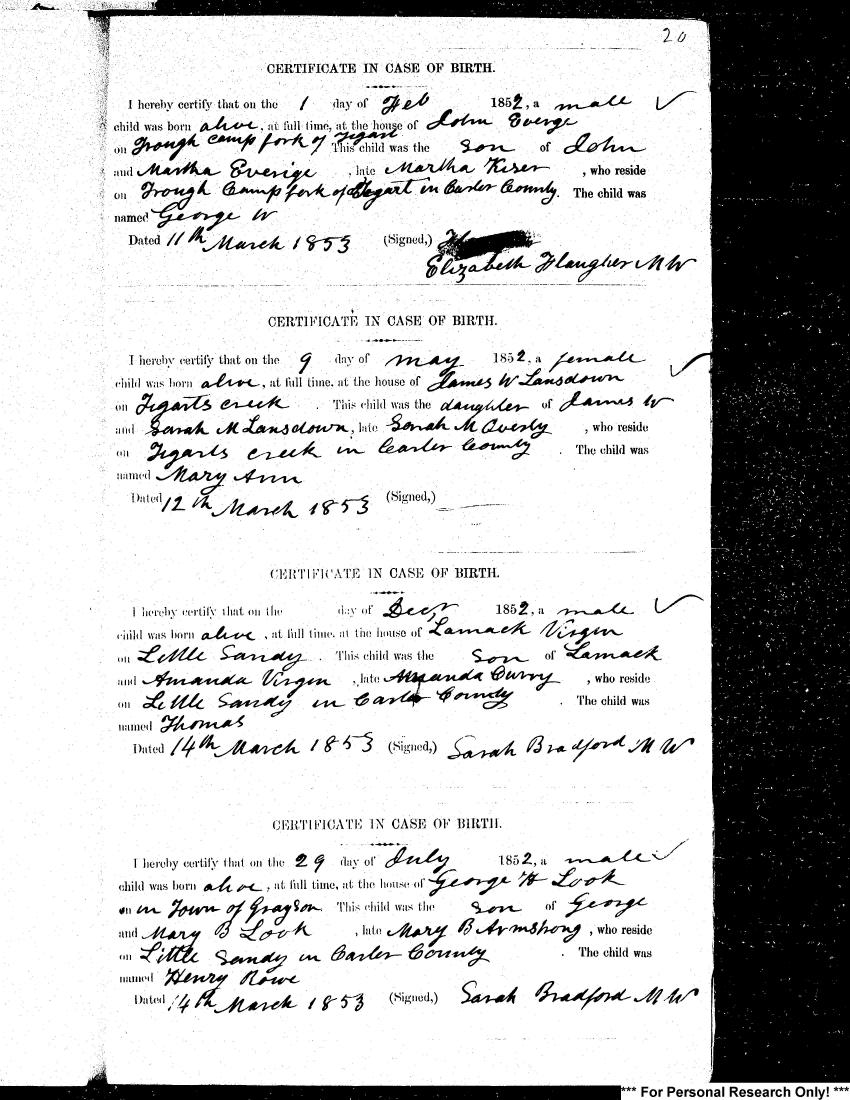 20
CERTIFICATE IN CASE OF BIRTH.
I hereby certify that on the 1 day of Feb 1852, a male
child was born alive, at full time, at the house of John Everge
on Trough camp fork of Tigart This child was the son of John
and Martha Everige, late Martha Kiser, who reside
on Trough Camp fork of Tygart in Carter County. The child was
named George W
Dated 11th March 1853 (Signed,)
Elizabeth Flaugher M W
CERTIFICATE IN CASE OF BIRTH.
I hereby certify that on the 9 day of may 1852, a female
child was born alive, at full time, at the house of James W Lansdown
on Tigarts creek. This child was the daughter of James W
and Sarah M Lansdown, late Sarah M Overly, who reside
on Tigarts creek in Carter County. The child was
named Mary Ann
Dated 12th March 1853 (Signed,)
CERTIFICATE IN CASE OF BIRTH.
I hereby certify that on the day of Decr 1852, a male
child was born alive, at full time, at the house of Lamack Virgin
on Little Sandy. This child was the son of Lamack
and Amanda Virgin, late Amanda Curry, who reside
on Little Sandy in Carter County. The child was
named Thomas
Dated 14th March 1853 (Signed,) Sarah Bradford M W
CERTIFICATE IN CASE OF BIRTH.
I hereby certify that on the 29 day of July 1852, a male
child was born alive, at full time, at the house of George H Look
on in Town of Grayson. This child was the son of George
and Mary B Look, late Mary B Armstrong, who reside
on Little Sandy in Carter County. The child was
named Henry Rowe
Dated 14th March 1853 (Signed,) Sarah Bradford M W
*** For Personal Research Only! ***